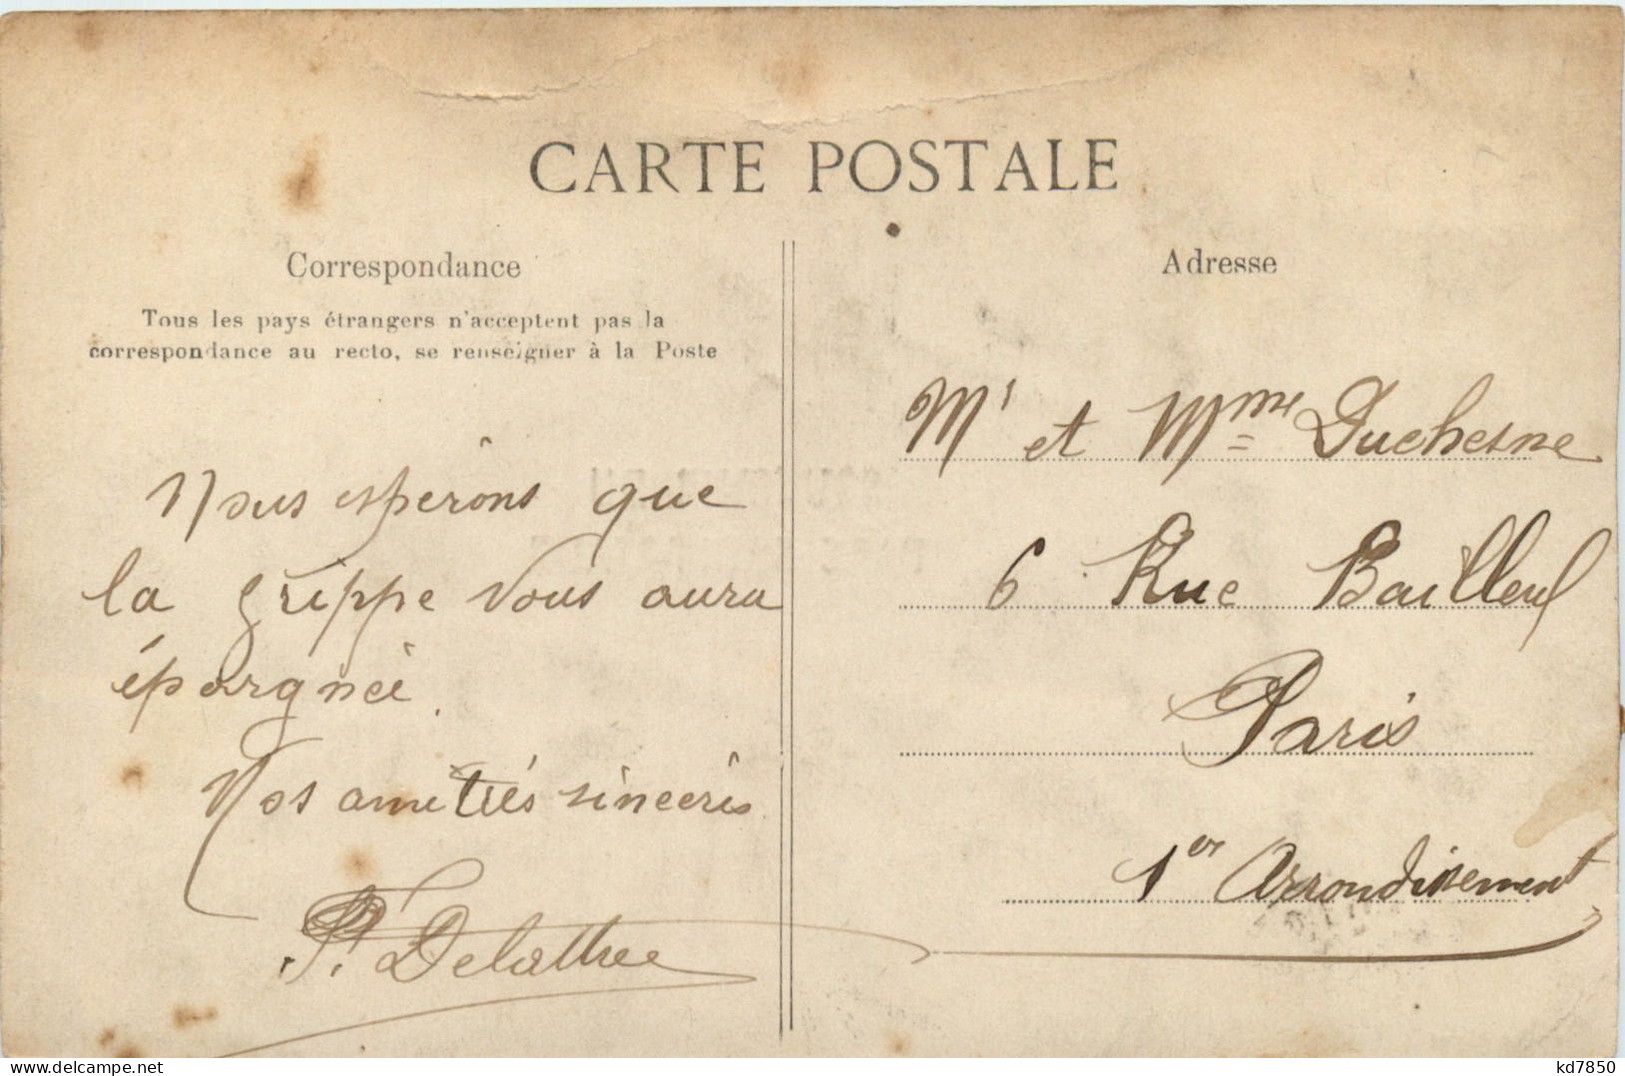 CARTE POSTALE
Correspondance
Tous les pays étrangers n'acceptent pas la
correspondance au recto, se renseigner à la Poste
Nous espérons que
la grippe vous aura
épargnés.
Nos amitiés sincères
P. Delattre
Adresse
Mr et Mme Duchesne
6 Rue Bailleul
Paris
1er Arrondissement
delcampe.net
kd7850